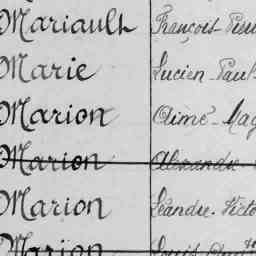 Mariault François-
Marie Lucien-Paul
Marion Aimé-
Marion Alexandre
Marion Léandre-Victo
Marion Louis